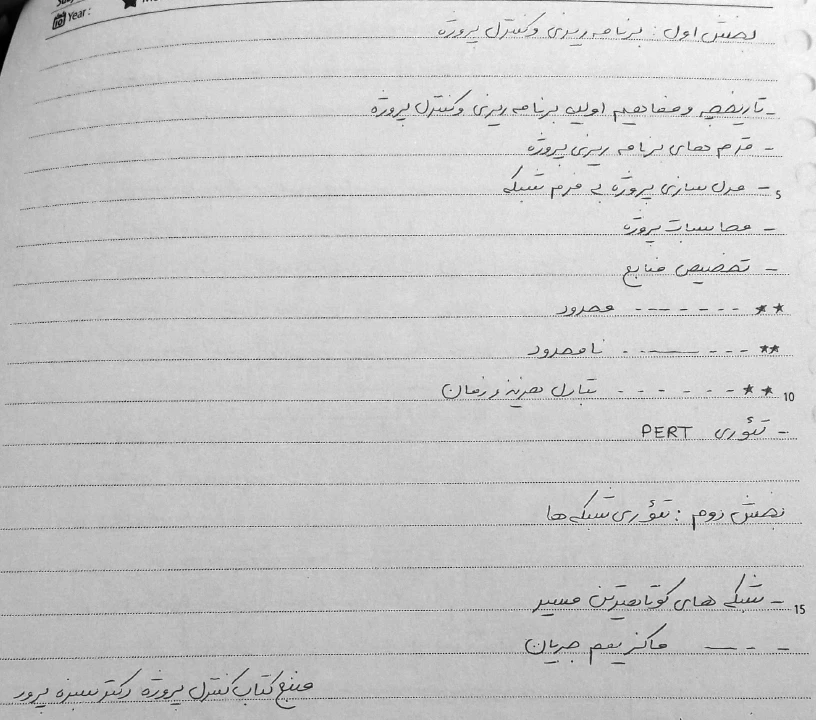 Year :
بخش اول : برنامه ریزی و کنترل پروژه
- تاریخچه و مفاهیم اولیه برنامه ریزی و کنترل پروژه
- قدم های برنامه ریزی پروژه
5 - مدل سازی پروژه به فرم شبکه
- محاسبات پروژه
- تخصیص منابع
★★ - - - - - - - محدود
★★ - - - —— - نامحدود
10 ★★ - - - - - - تبادل هزینه و زمان
- تئوری PERT
بخش دوم : تئوری شبکه ها
15 - شبکه های کوتاهترین مسیر
- - — ماکزیمم جریان
منبع کتاب کنترل پروژه دکتر سبزه پرور